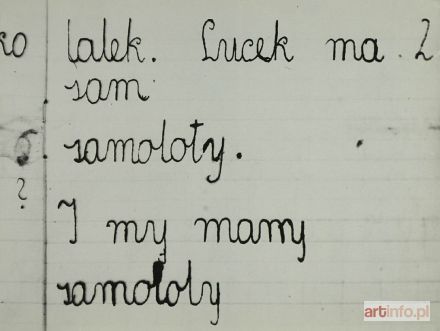 ko lalek. Lucek ma 2
sam
samoloty.
?
I my mamy
samoloty
artinfo.pl